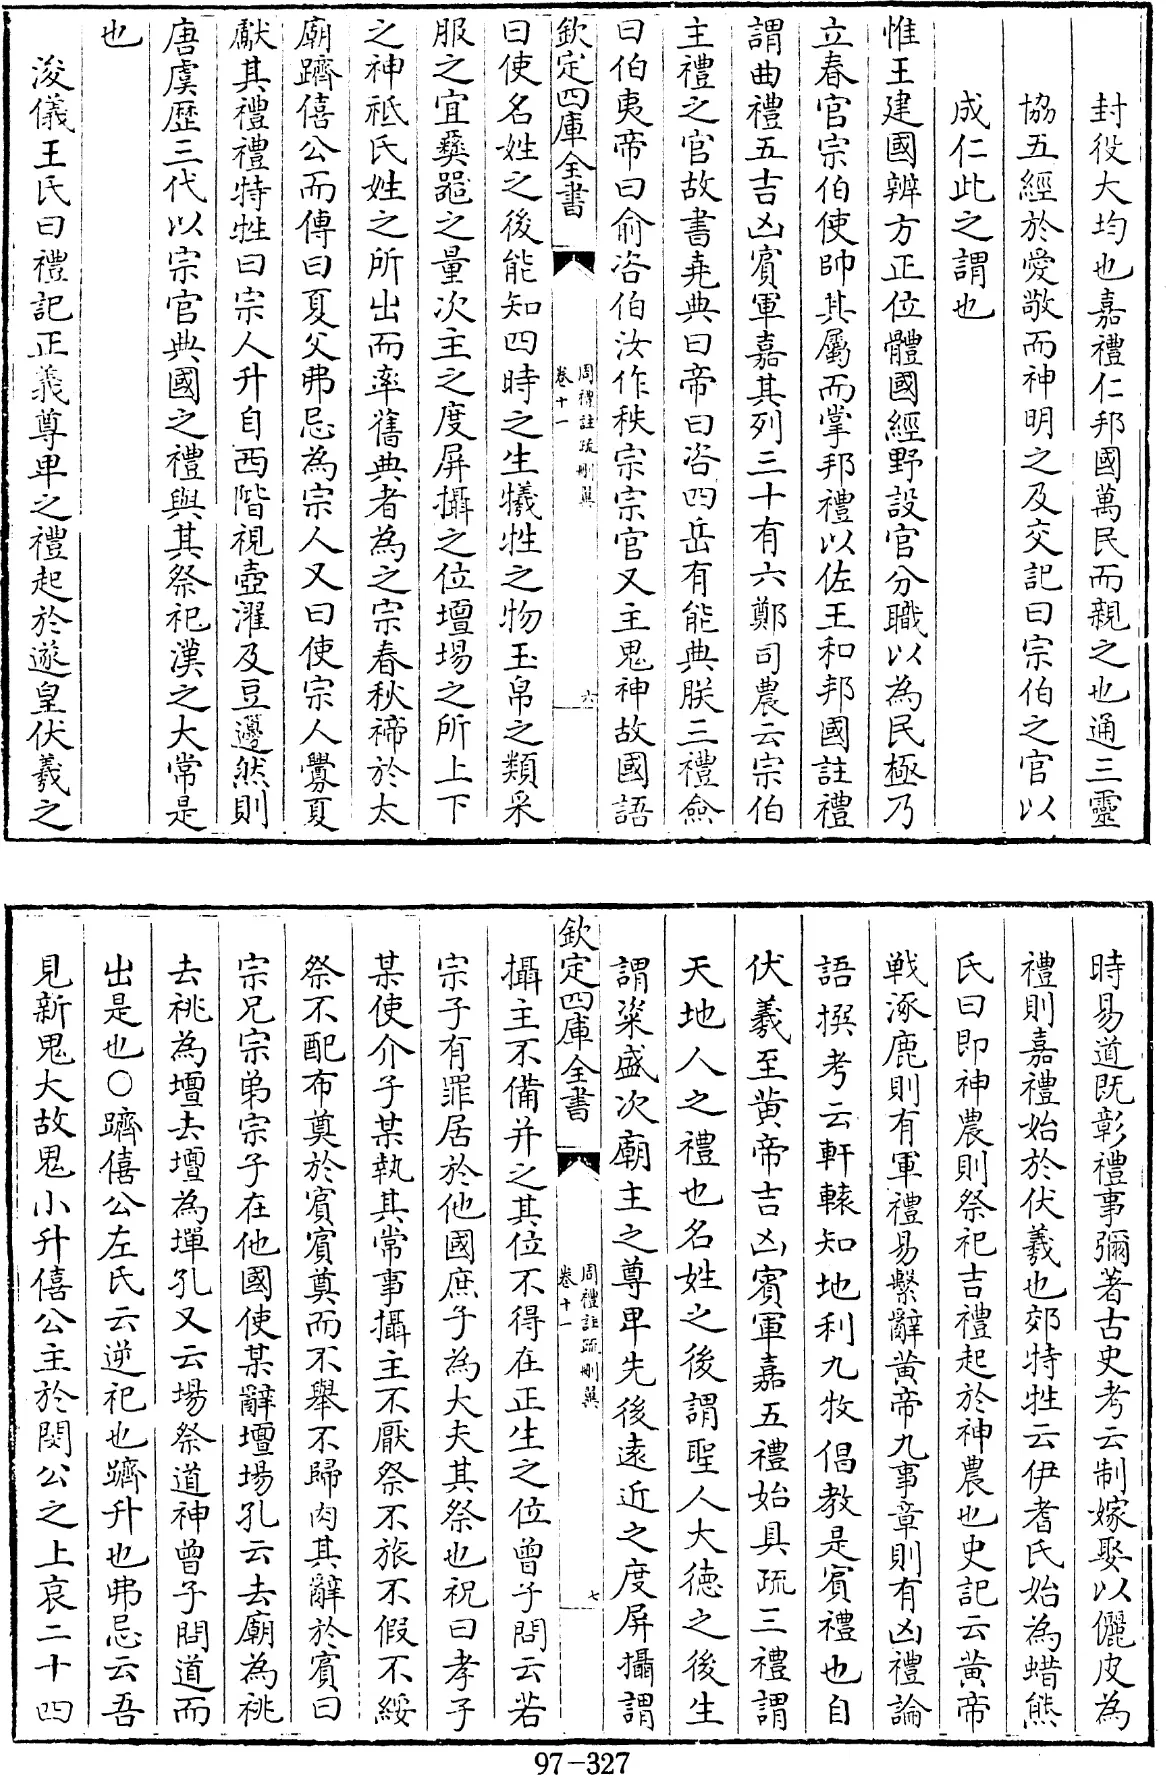 封役大均也嘉禮仁邦國萬民而親之也通三靈
協五經於愛敬而神明之及交記曰宗伯之官以
成仁此之謂也
惟王建國辨方正位體國經野設官分職以為民極乃
立春官宗伯使帥其屬而掌邦禮以佐王和邦國註禮
謂曲禮五吉凶賓軍嘉其列三十有六鄭司農云宗伯
主禮之官故書堯典曰帝曰咨四岳有能典朕三禮僉
曰伯夷帝曰俞咨伯汝作秩宗宗官又主鬼神故國語
欽定四庫全書
周禮註疏刪翼
卷十一
六
曰使名姓之後能知四時之生犧牲之物玉帛之類采
服之宜彝器之量次主之度屏攝之位壇場之所上下
之神祗氏姓之所出而率舊典者為之宗春秋禘於太
廟躋僖公而傳曰夏父弗忌為宗人又曰使宗人釁夏
獻其禮禮特牲曰宗人升自西階視壺濯及豆籩然則
唐虞歷三代以宗官典國之禮與其祭祀漢之大常是
也
浚儀王氏曰禮記正義尊卑之禮起於遂皇伏羲之
時易道既彰禮事彌著古史考云制嫁娶以儷皮為
禮則嘉禮始於伏羲也郊特牲云伊耆氏始為蜡熊
氏曰即神農則祭祀吉禮起於神農也史記云黃帝
戰涿鹿則有軍禮易繫辭黃帝九事章則有凶禮論
語撰考云軒轅知地利九牧倡教是賓禮也自
伏羲至黃帝吉凶賓軍嘉五禮始具疏三禮謂
天地人之禮也名姓之後謂聖人大德之後生
謂粢盛次廟主之尊卑先後遠近之度屏攝謂
欽定四庫全書
周禮註疏刪翼
卷十一
七
攝主不備并之其位不得在正生之位曾子問云若
宗子有罪居於他國庶子為大夫其祭也祝曰孝子
某使介子某執其常事攝主不厭祭不旅不假不綏
祭不配布奠於賓賓奠而不舉不歸肉其辭於賓曰
宗兄宗弟宗子在他國使某辭壇場孔云去廟為祧
去祧為壇去壇為墠孔又云場祭道神曾子問道而
出是也○躋僖公左氏云逆祀也躋升也弗忌云吾
見新鬼大故鬼小升僖公主於閔公之上哀二十四
97-327